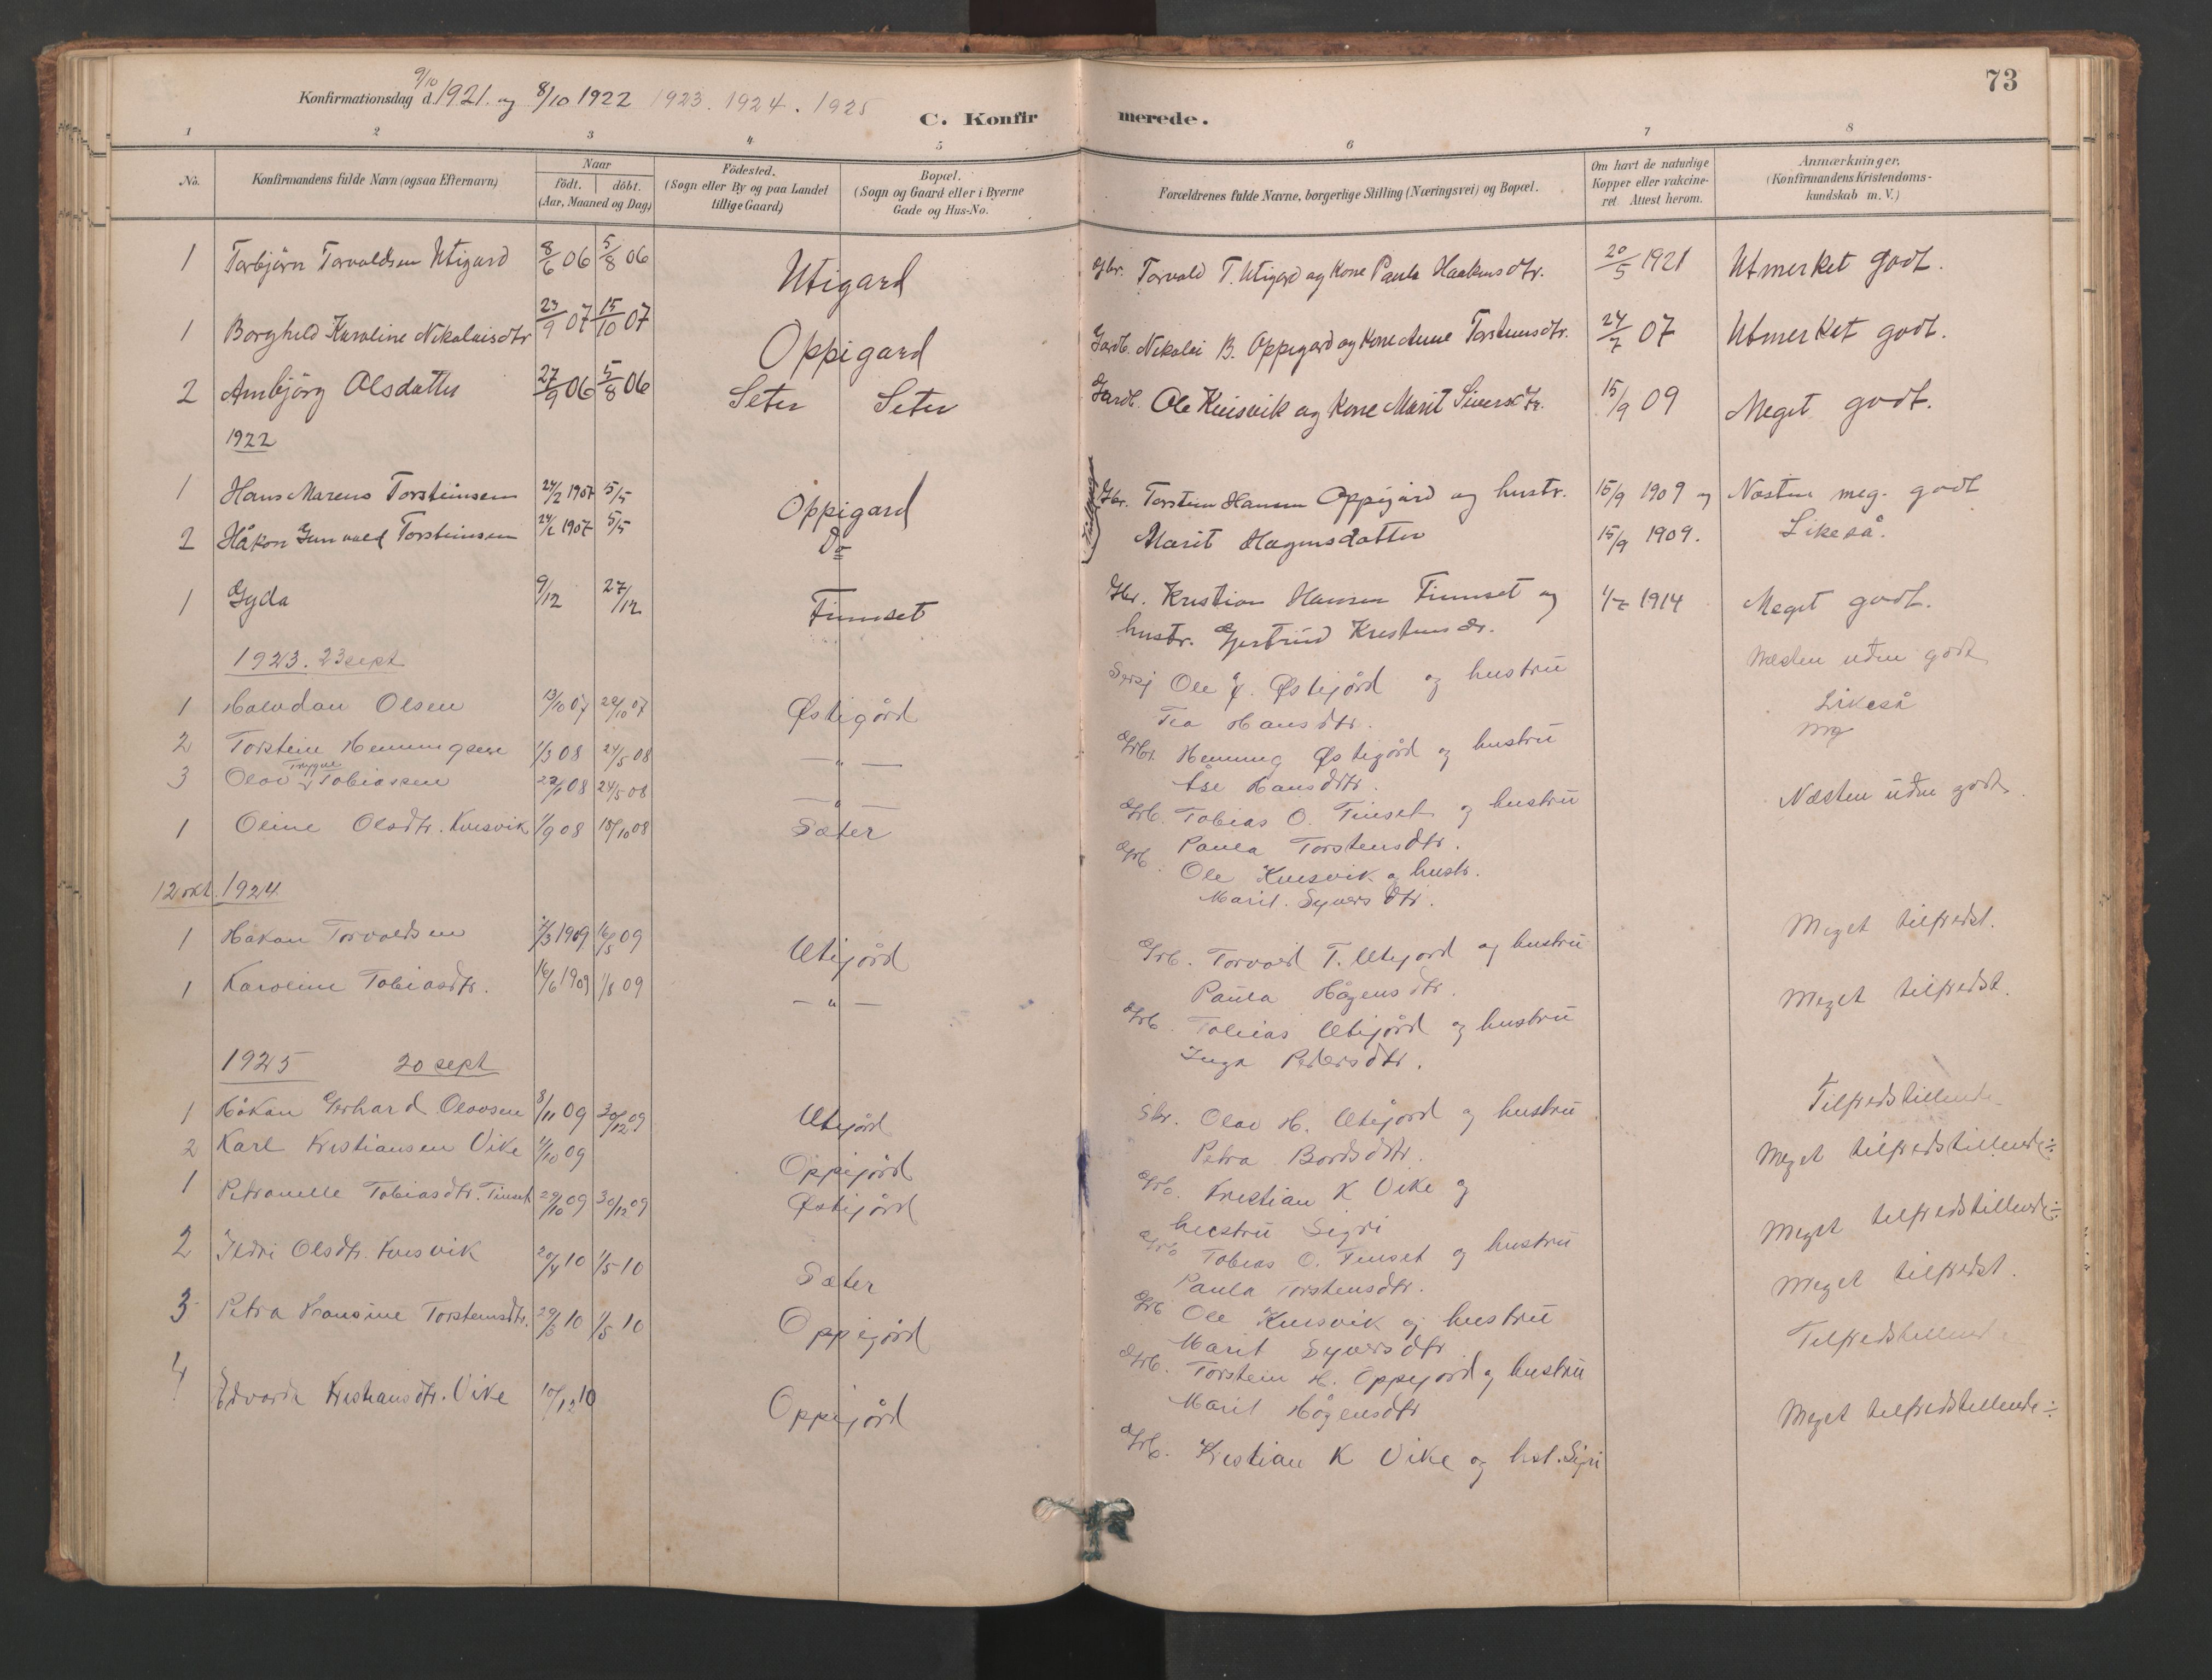 73
Konfirmationsdag d. 9/10 1921. og 8/10 1922 1923. 1924. 1925
C. Konfirmerede.
1 2 3 4 5 6 7 8
No. Konfirmandens fulde Navn (ogsaa Efternavn) Naar födt. döbt. (Aar, Maaned og Dag) Födested. (Sogn eller By og paa Landet tillige Gaard) Bopæl. (Sogn og Gaard eller i Byerne Gade og Hus-No. Forældrenes fulde Navne, borgerlige Stilling (Næringsvei) og Bopæl. Om havt de naturlige Kopper eller vakcineret. Attest herom. Anmærkninger, (Konfirmandens Kristendomskundskab m. V.)
1 Torbjørn Torvaldsen Utigard 8/6 06 5/8 06 Utigard Gbr. Torvald T. Utigard og Kone Paula Haakensdtr. 20/5 1921 Utmerket godt.
1 Borghild Karoline Nikolaisdtr 23/9 07 15/10 07 Oppigard Gardb. Nikolai B. Oppigard og Kone Anne Torsteinsdtr. 24/7 07 Utmerket godt.
2 Ambjörg Olsdatter 27/9 06 5/8 06 Seter Seter Gardb. Ole Kvisvik og Kone Marit Siversdtr. 15/9 09 Meget godt.
1922
1 Hans Marenus Torsteinsen 24/2 1907 15/5 Oppigard Gbr. Torstein Hansen Oppigård og hustr. 15/9 1909 og Næsten meg. godt
2 Håkon Gunvald Torsteinsen 24/2 1907 5/5 Do Marit Hagensdatter 15/9 1909. Likeså.
1 Gyda 9/12 27/12 Finnset Gbr. Kristian Hansen Finnset og 1/7 1914 Meget godt.
hustr. Gjertrud Kristensdr.
1923. 23 sept
1 Halvdan Olsen 13/10 07 20/10 07 Østigård Ole J. Østigård og hustru Næsten uten godt
Tea Hansdtr.
Likeså
2 Torstein Henningsen 1/3 08 24/5 08 — " — Grbr. Henning Østigård og hustru mg
Åse Hansdtr.
3 Olav Trygve Tobiassen 22/1 08 24/5 08 — " — Grb. Tobias O. Finset og hustru Næsten uten godt.
Paula Torstensdtr.
1 Oline Olsdtr. Kvisvik 1/9 08 18/10 08 Sæter Grb. Ole Kvisvik og hustr.
Marit Syversdtr.
12 okt. 1924
1 Håkon Torvaldsen 7/3 1909 16/5 09 Utigård Grb. Torvald T. Utigard og hustru Meget tilfredst.
Paula Hågensdtr.
1 Karoline Tobiasdtr. 16/6 1909 1/8 09 — " — Grb. Tobias Utigård og hustru Meget tilfredst.
Inga Pedersdtr.
1925 20 sept
1 Håkon Gerhard Olavsen 8/11 09 30/12 09 Utigård Olav H. Utigård og hustru Tilfredstillende
Petra Bordsdtr.
2 Karl Kristiansen Vike 1/10 09 Oppigård Grb. Kristian K Vike og Meget tilfredstillende ÷
hustru Sigri
1 Petronelle Tobiasdtr. Finset 29/10 09 30/12 09 Østigård Grb Tobias O. Finset og hustru Meget tilfredstillende ÷
Paula Torstensdtr.
2 Ildri Olsdtr. Kvisvik 20/4 10 1/5 10 Sæter Grb Ole Kvisvik og hustru Meget tilfredst.
Marit Syversdtr
3 Petra Hansine Torsteinsdtr. 29/3 10 1/5 10 Oppigård Grb. Torstein H. Oppigård og hustru Tilfredstillende
Marit Hågensdtr
4 Edvarda Kristiansdtr. Vike 10/12 10 Oppigård Grb. Kristian K Vike og hst. Sigri Meget tilfredstillende ÷